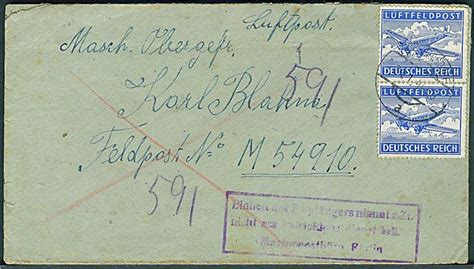 Luftpost.
LUFTFELDPOST
DEUTSCHES REICH
LUFTFELDPOST
DEUTSCHES REICH
Masch. Obergefr.
591
Karl
Feldpost No M 54910.
591
Einheit des Empfängers nimmt z. Zt.
nicht am teil.
Berlin